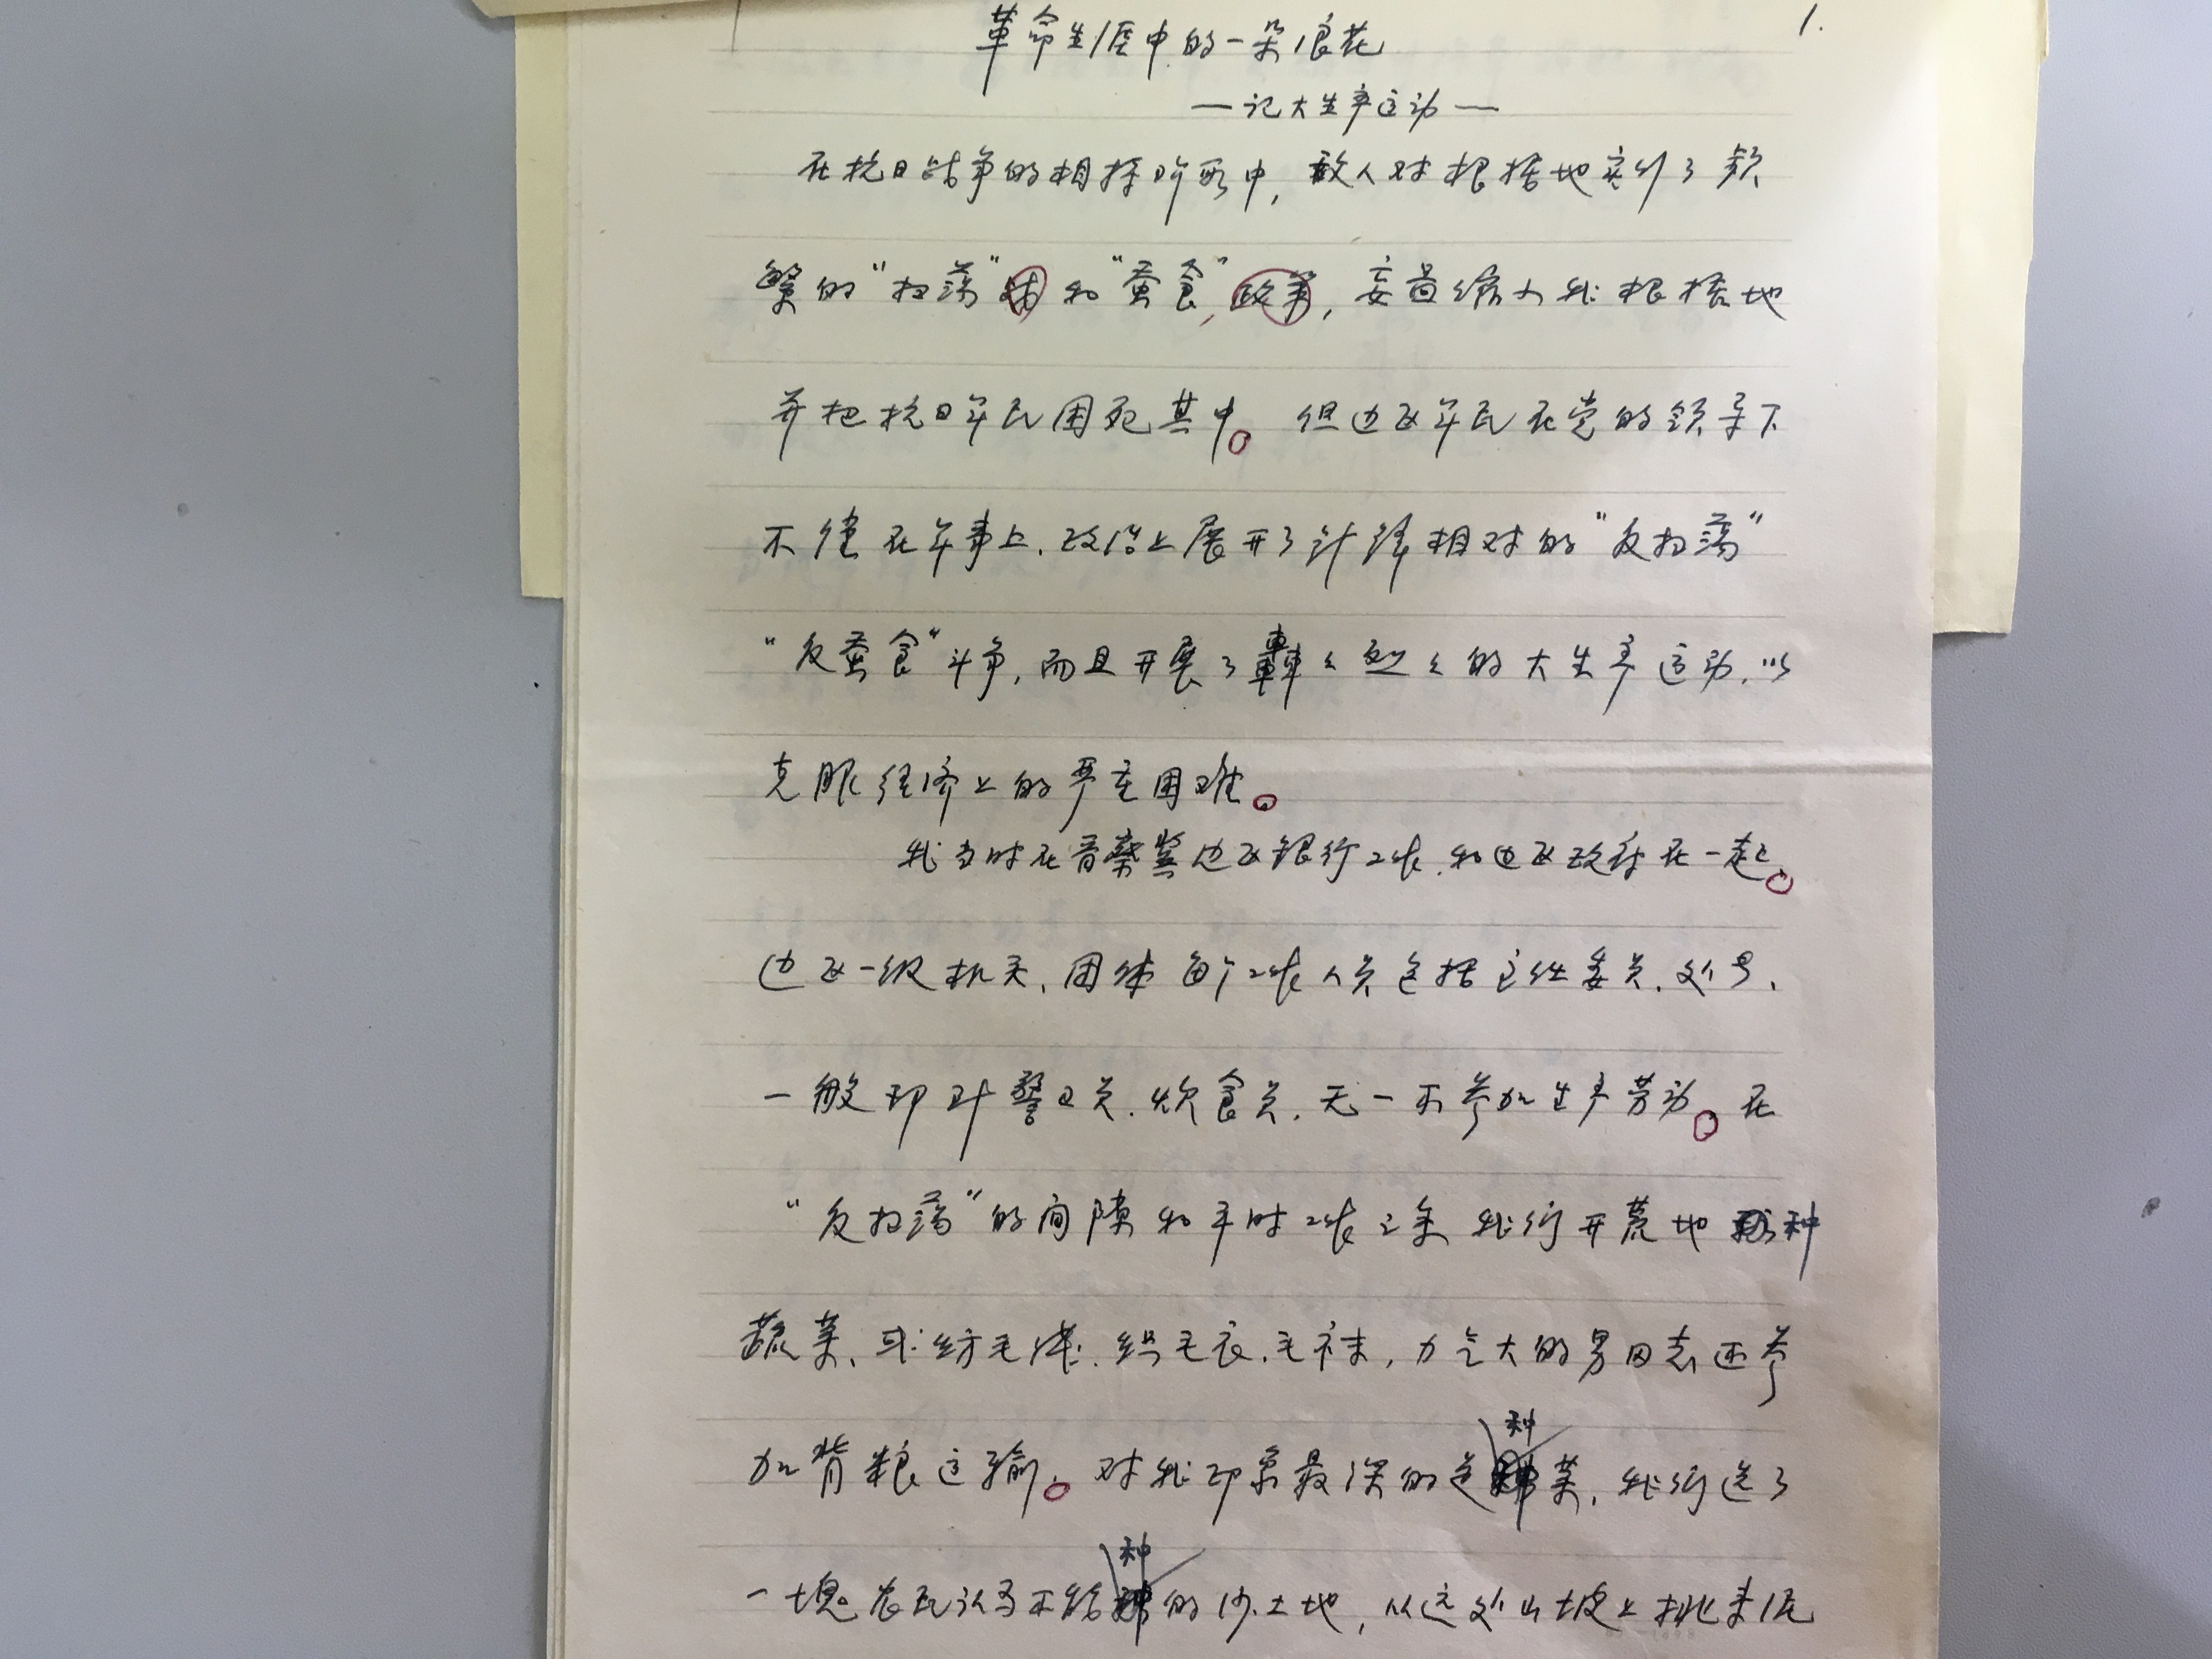 1.
革命生涯中的一朵浪花
—记大生产运动—
在抗日战争的相持阶段中，敌人对根据地实行了频
繁的“扫荡”和“蚕食”政策，妄图缩小我根据地
并把抗日军民困死其中。但边区军民在党的领导下
不仅在军事上、政治上展开了针锋相对的“反扫荡”
“反蚕食”斗争，而且开展了轰々烈々的大生产运动，以
克服经济上的严重困难。
我当时在晋察冀边区银行工作，和边区政府在一起。
边区一级机关、团体每个工作人员包括主任委员、处长、
一般干部警卫员、炊食员，无一不参加生产劳动。在
“反扫荡”的间隙和平时工作之余我们开荒地种
蔬菜、纺毛线、织毛衣、毛袜，力气大的男同志还参
加背粮运输。对我印象最深的是种菜，我们选了
一块农民认为不能种的沙土地，从远处山坡上挑来泥